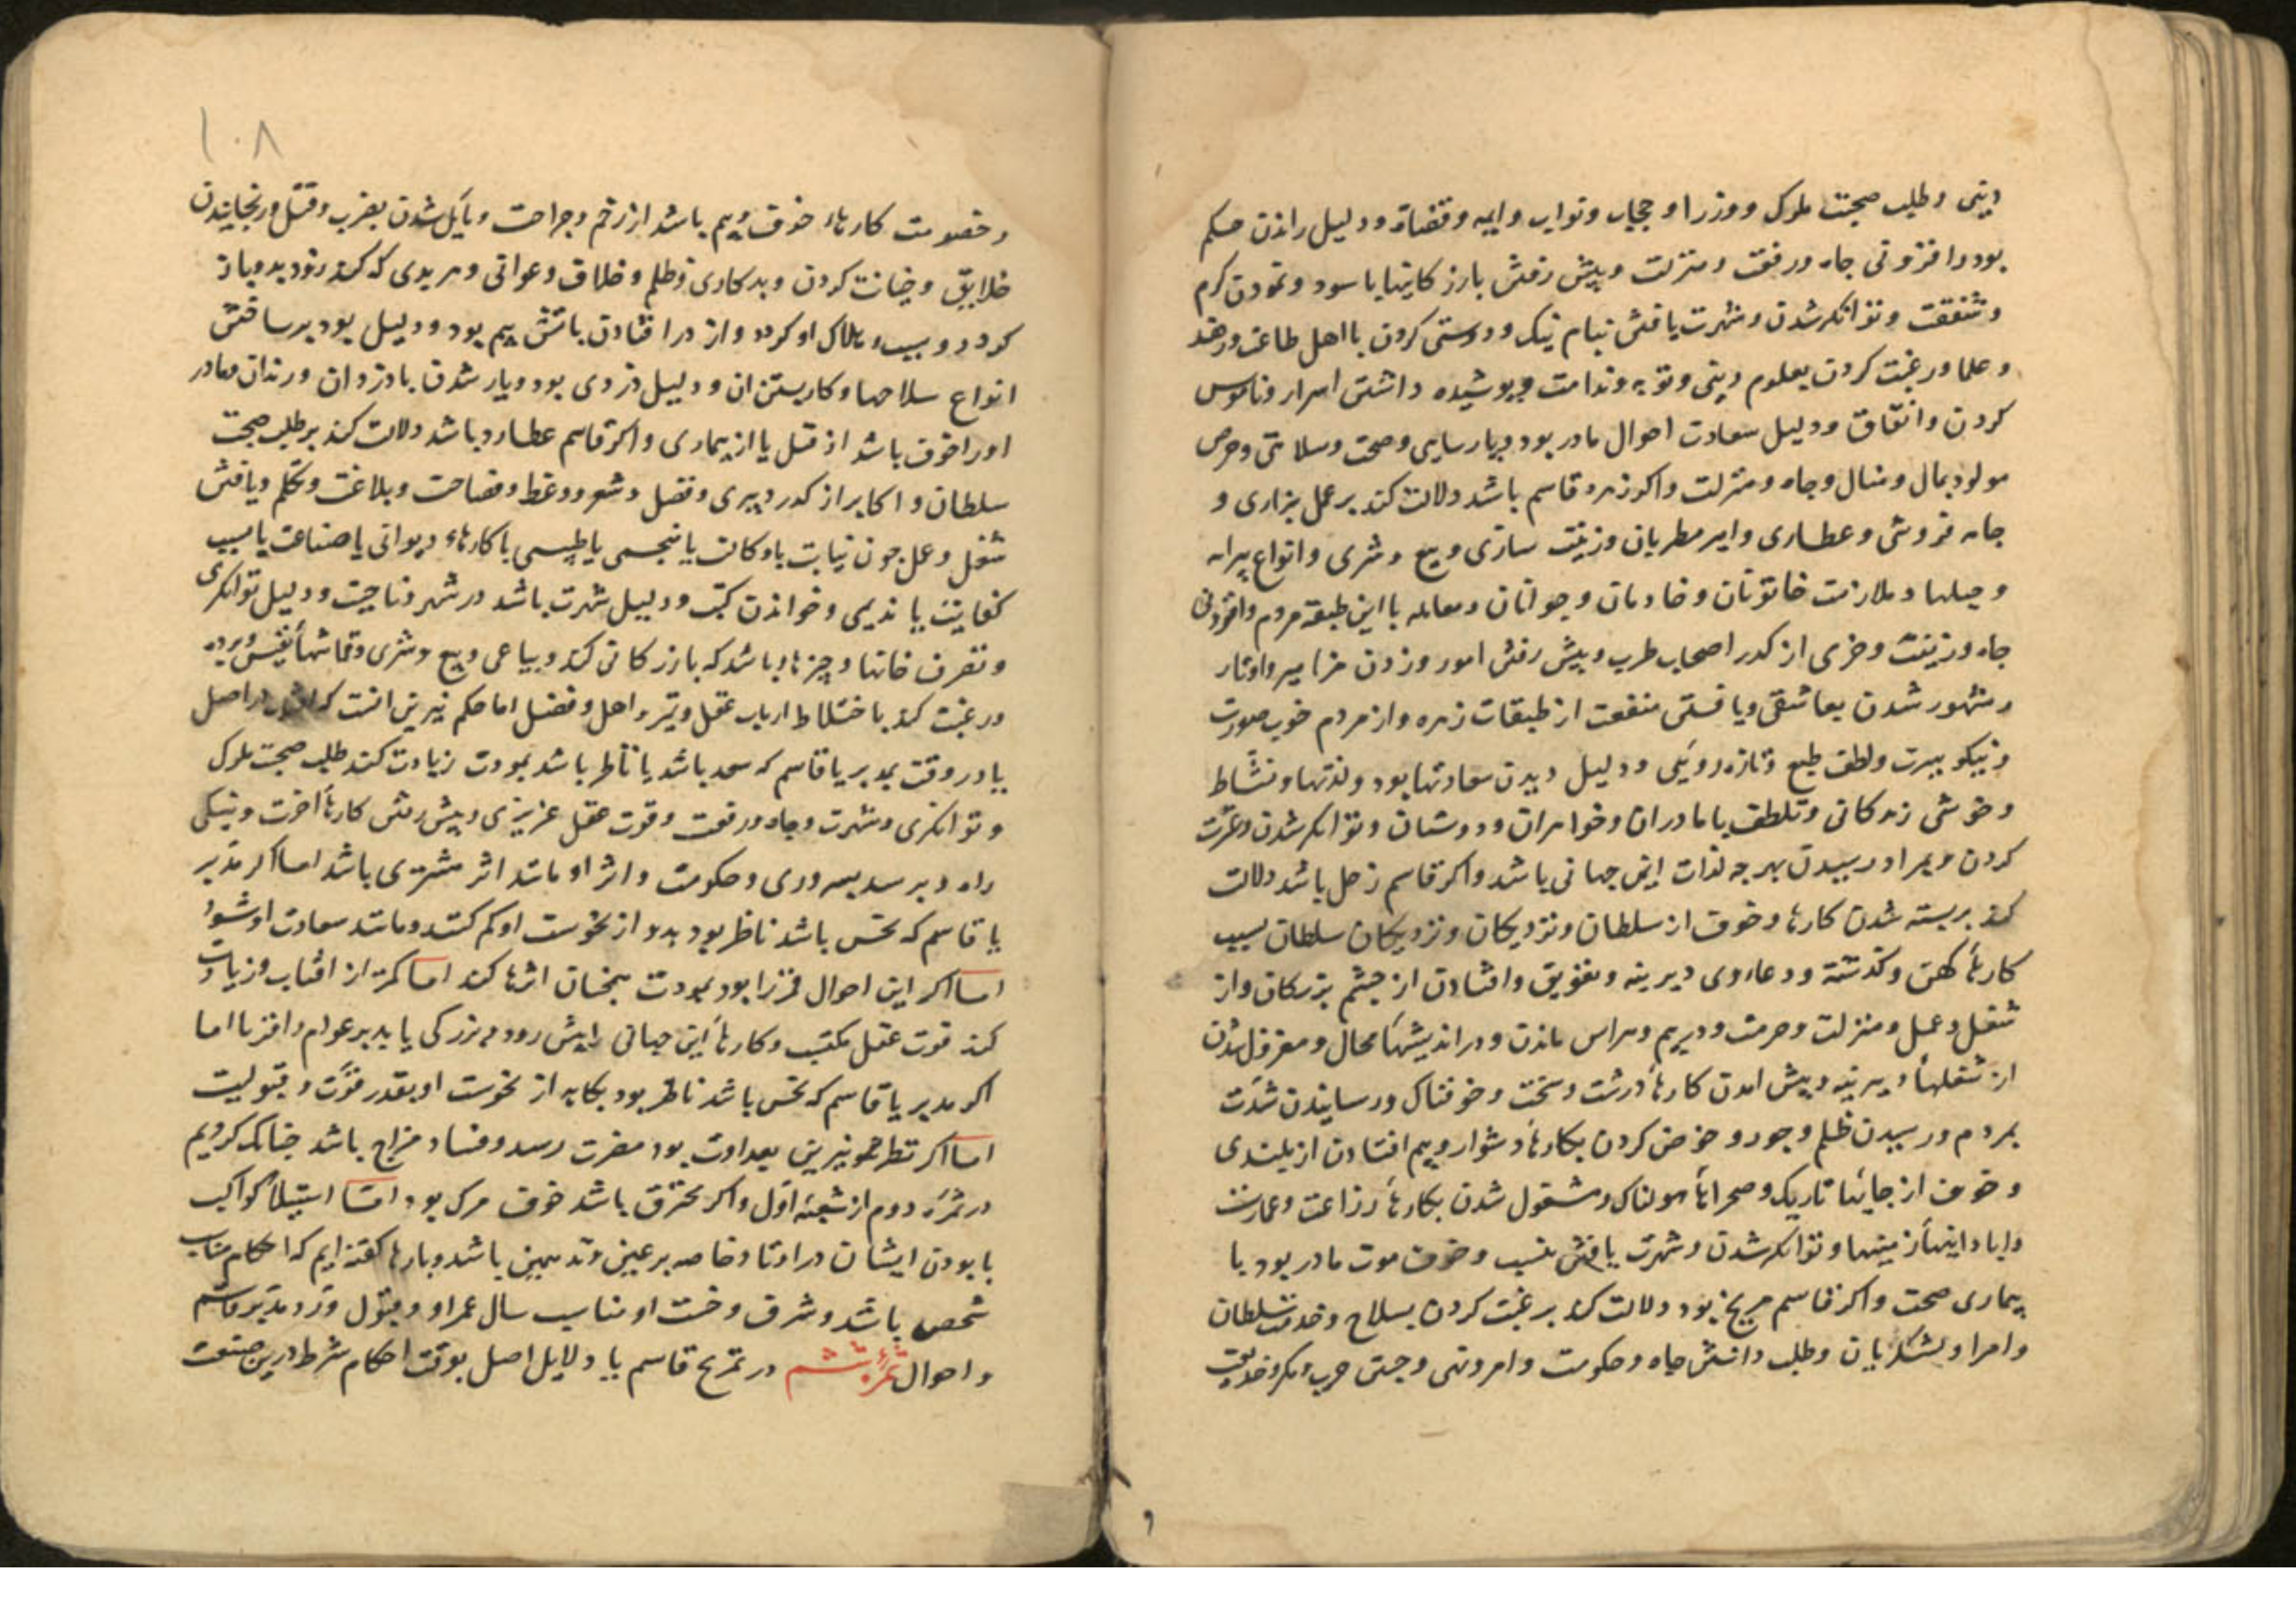 دینی و طلب صحبت ملوک و وزرا و حجاب و نواب و ایمه و قضاة و دلیل راندن حکم
بود و افزونی جاه و رفعت و منزلت و پیش رفتن بازرکانیها با سود و نمودن کرم
و شفقت و توانکر شدن و شهرت یافتن بنام نیک و دوستی کردن با اهل طاعت و زهد
و علما و رغبت کردن بعلوم دینی و توبه و ندامت و پوشیده داشتن اسرار و ناموس
کردن و اتفاق و دلیل سعادت احوال مادر بود و صحت و سلامتی و حرص
مولود بمال و منال و جاه و منزلت و اکر زهره قاسم باشد دلالت کند بر عمل بزازی و
جامه فروشی و عطاری و امیر مطربان و زینت سازی و بیع و شری و انواع پیرایه
و حیلها و ملازمت خاتونان و خادمان و جوانان و معامله با این طبقه مردم و افزونی
جاه و زینت و خرمی از کدر اصحاب طرب و پیش رفتن امور و زدن مزامیر و اوتار
و مشهور شدن بعاشقی و یافتن منفعت از طبقات زهره و از مردم خوب صورت
و نیکو سیرت و لطف طبع و تازه رویی و دلیل دیدن سعادتها بود و لذتها و نشاط
و خوشی زندکانی و تلطف با مادران و خواهران و دوستان و توانکر شدن و عزت
کردن و بمراد رسیدن بهرجه لذات این جهانی باشد و اکر قاسم زحل باشد دلالت
کند بر بسته شدن کارها و خوف از سلطان و نزدیکان و نزدیکان سلطان بسبب
کارهاء کهن و کذشته و دعاوی دیرینه و تعویق و افتادن از جشم بزرکان و از
شغل و عمل و منزلت و حرمت و در بیم و هراس ماندن و در اندیشهاء محال و معزول شدن
از شغلهاء دیرینه و پیش امدن کارهاء درشت و سخت و خوفناک و رسانیدن شدت
بمردم و رسیدن ظلم و جور و خوض کردن بکارهاء دشوار و بیم افتادن از بلندی
و خوف از جایها تاریک و صحراهاء هولناک و مشغول شدن بکارهاء زراعت و عمارت
و ابادانیهاء زمینها و توانکر شدن و شهرت یافتن بنسب و خوف موت مادر بود با
بیماری صحت و اکر قاسم مریخ بود دلالت کند بر رغبت کردن بسلاح و خدمت سلطان
و امرا و لشکریان و طلب داشتن جاه و حکومت و امر و نهی و جستن حرب و مکر و خدیعت
۱۰۸
و خصومت کارهاء خوف و بیم باشد از زخم و جراحت و مایل شدن بضرب و قتل و رنجانیدن
خلایق و خیانت کردن و بدکاری و ظلم و خلاف و عوانی و هر بدی که کند زود بدو باز
کردد و سبب هلاک او کردد و از در افتادن باتش بیم بود و دلیل بود بر ساختن
انواع سلاحها و کار بستن ان و دلیل دزدی بود و یار شدن با دزدان و رندان و مادر
او را خوف باشد از قتل یا از بیماری و اکر قاسم عطارد باشد دلالت کند بر طلب صحبت
سلطان و اکابر از کدر دبیری و فضل و شعر و وعظ و فصاحت و بلاغت و تکلم و یافتن
شغل و عمل جون نیابت یا وکالت یا منجمی یا طبیبی یا کارهاء دیوانی یا صناعت یا بسبب
کفایت یا ندیمی و خواندن کتب و دلیل شهرت باشد در شهر و ناحیت و دلیل توانکری
و تصرف خانها و چیزها باشد که بازرکانی کند و بیاعی و بیع و شری و قماشهاء نفیس و برده
و رغبت کند باختلاط ارباب عقل و تمیز و اهل و فضل اما حکم نیرین انست که در اصل
یا در وقت مدبر یا قاسم که سعد باشد یا ناظر باشد بمودت زیادت کند طلب صحبت ملوک
و توانکری و شهرت و جاه و رفعت و قوت عقل غریزی و پیش رفتن کارهاء اخرت و نیکی
راه و برسد بسروری و حکومت و اثر او مانند اثر مشتری باشد اما اکر مدبر
یا قاسم که نحس باشد ناظر بود بدو از نحوست او کم کنند و مانند سعادت او شود
اما اکر این احوال قمر را بود بمودت همجنان اثرها کند اما کمتر از افتاب و زیادت
کند قوت عقل مکتسب و کارهاء این جهانی را پیش رود و بزرکی یابد بر عوام و اقربا اما
اکر مدبر یا قاسم که نحس باشد ناظر بود بکاهد از نحوست او بقدر قوت و قبولیت
اما اکر نظر نیرین بعداوت بود مضرت رسد و فساد مزاج باشد جنانک کردیم
در ثمره دوم از شعبه اول و اکر محترق باشد خوف مرک بود اما استیلا کواکب
با بودن ایشان در اوتاد خاصه بر عین وتد همین باشد و بارها کفته ایم که احکام مناسب
شخص باشد و شرف و خست او مناسب سال عمر او و قبول و رد مدبر و قاسم
و احوال ثمره ششم در تمزیج قاسم با دلایل اصل بوقت احکام شرط درین صنعت